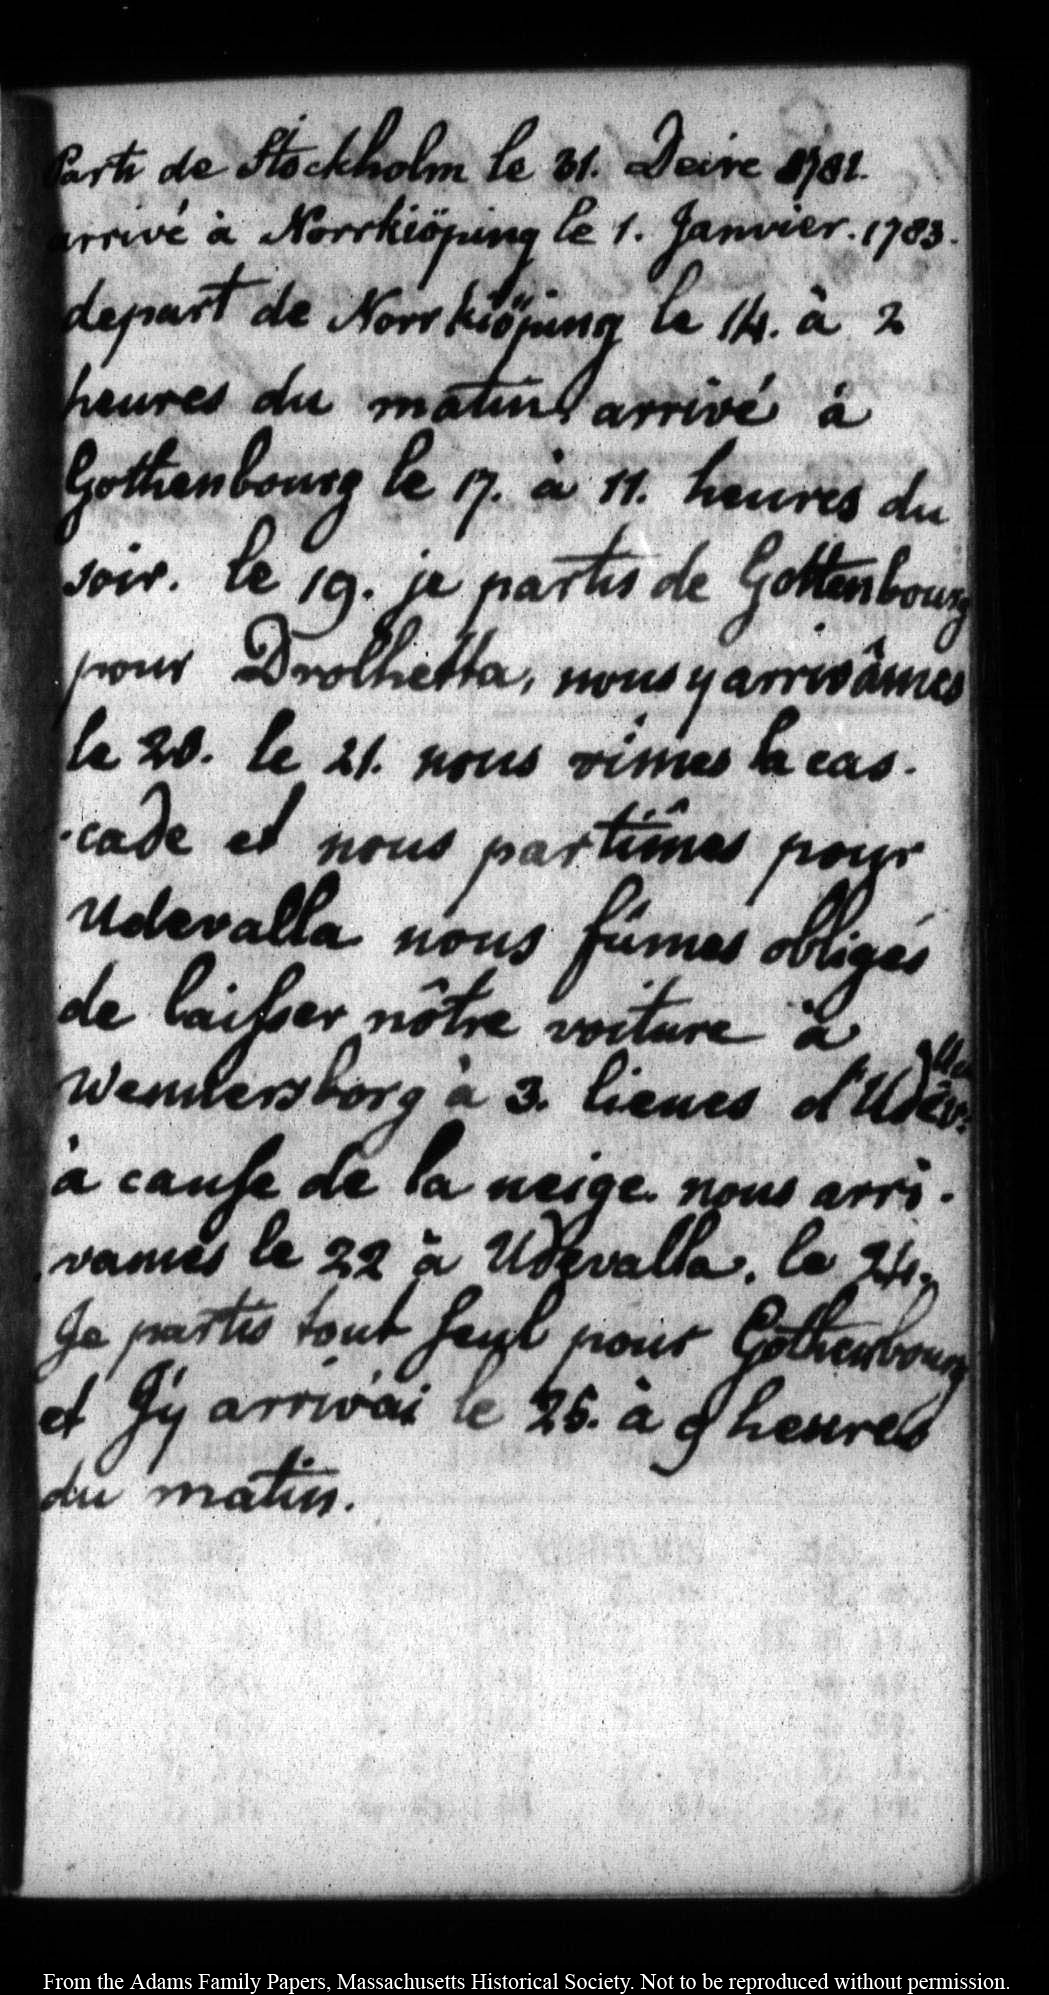 Parti de Stockholm le 31. Decire 1782.
arrivé à Norrkiöping le 1. Janvier. 1783.
depart de Norrkiöping le 14. à 2
heures du matin, arrivé à
Gothenbourg le 17. à 11. heures du
soir. le 19. je partis de Gottenbourg
pour Drolhetta, nous y arrivâmes
le 20. le 21. nous vimes la cas-
-cade et nous partîmes pour
Udevalla nous fûmes obligés
de laisser nôtre voiture à
Wennersborg à 3. lieues d'Udevalla
à cause de la neige. nous arri-
vames le 22 à Udevalla. le 24.
Je partis tout seul pour Gothenbourg
et J'y arrivai le 25. à 9 heures
du matin.
From the Adams Family Papers, Massachusetts Historical Society. Not to be reproduced without permission.